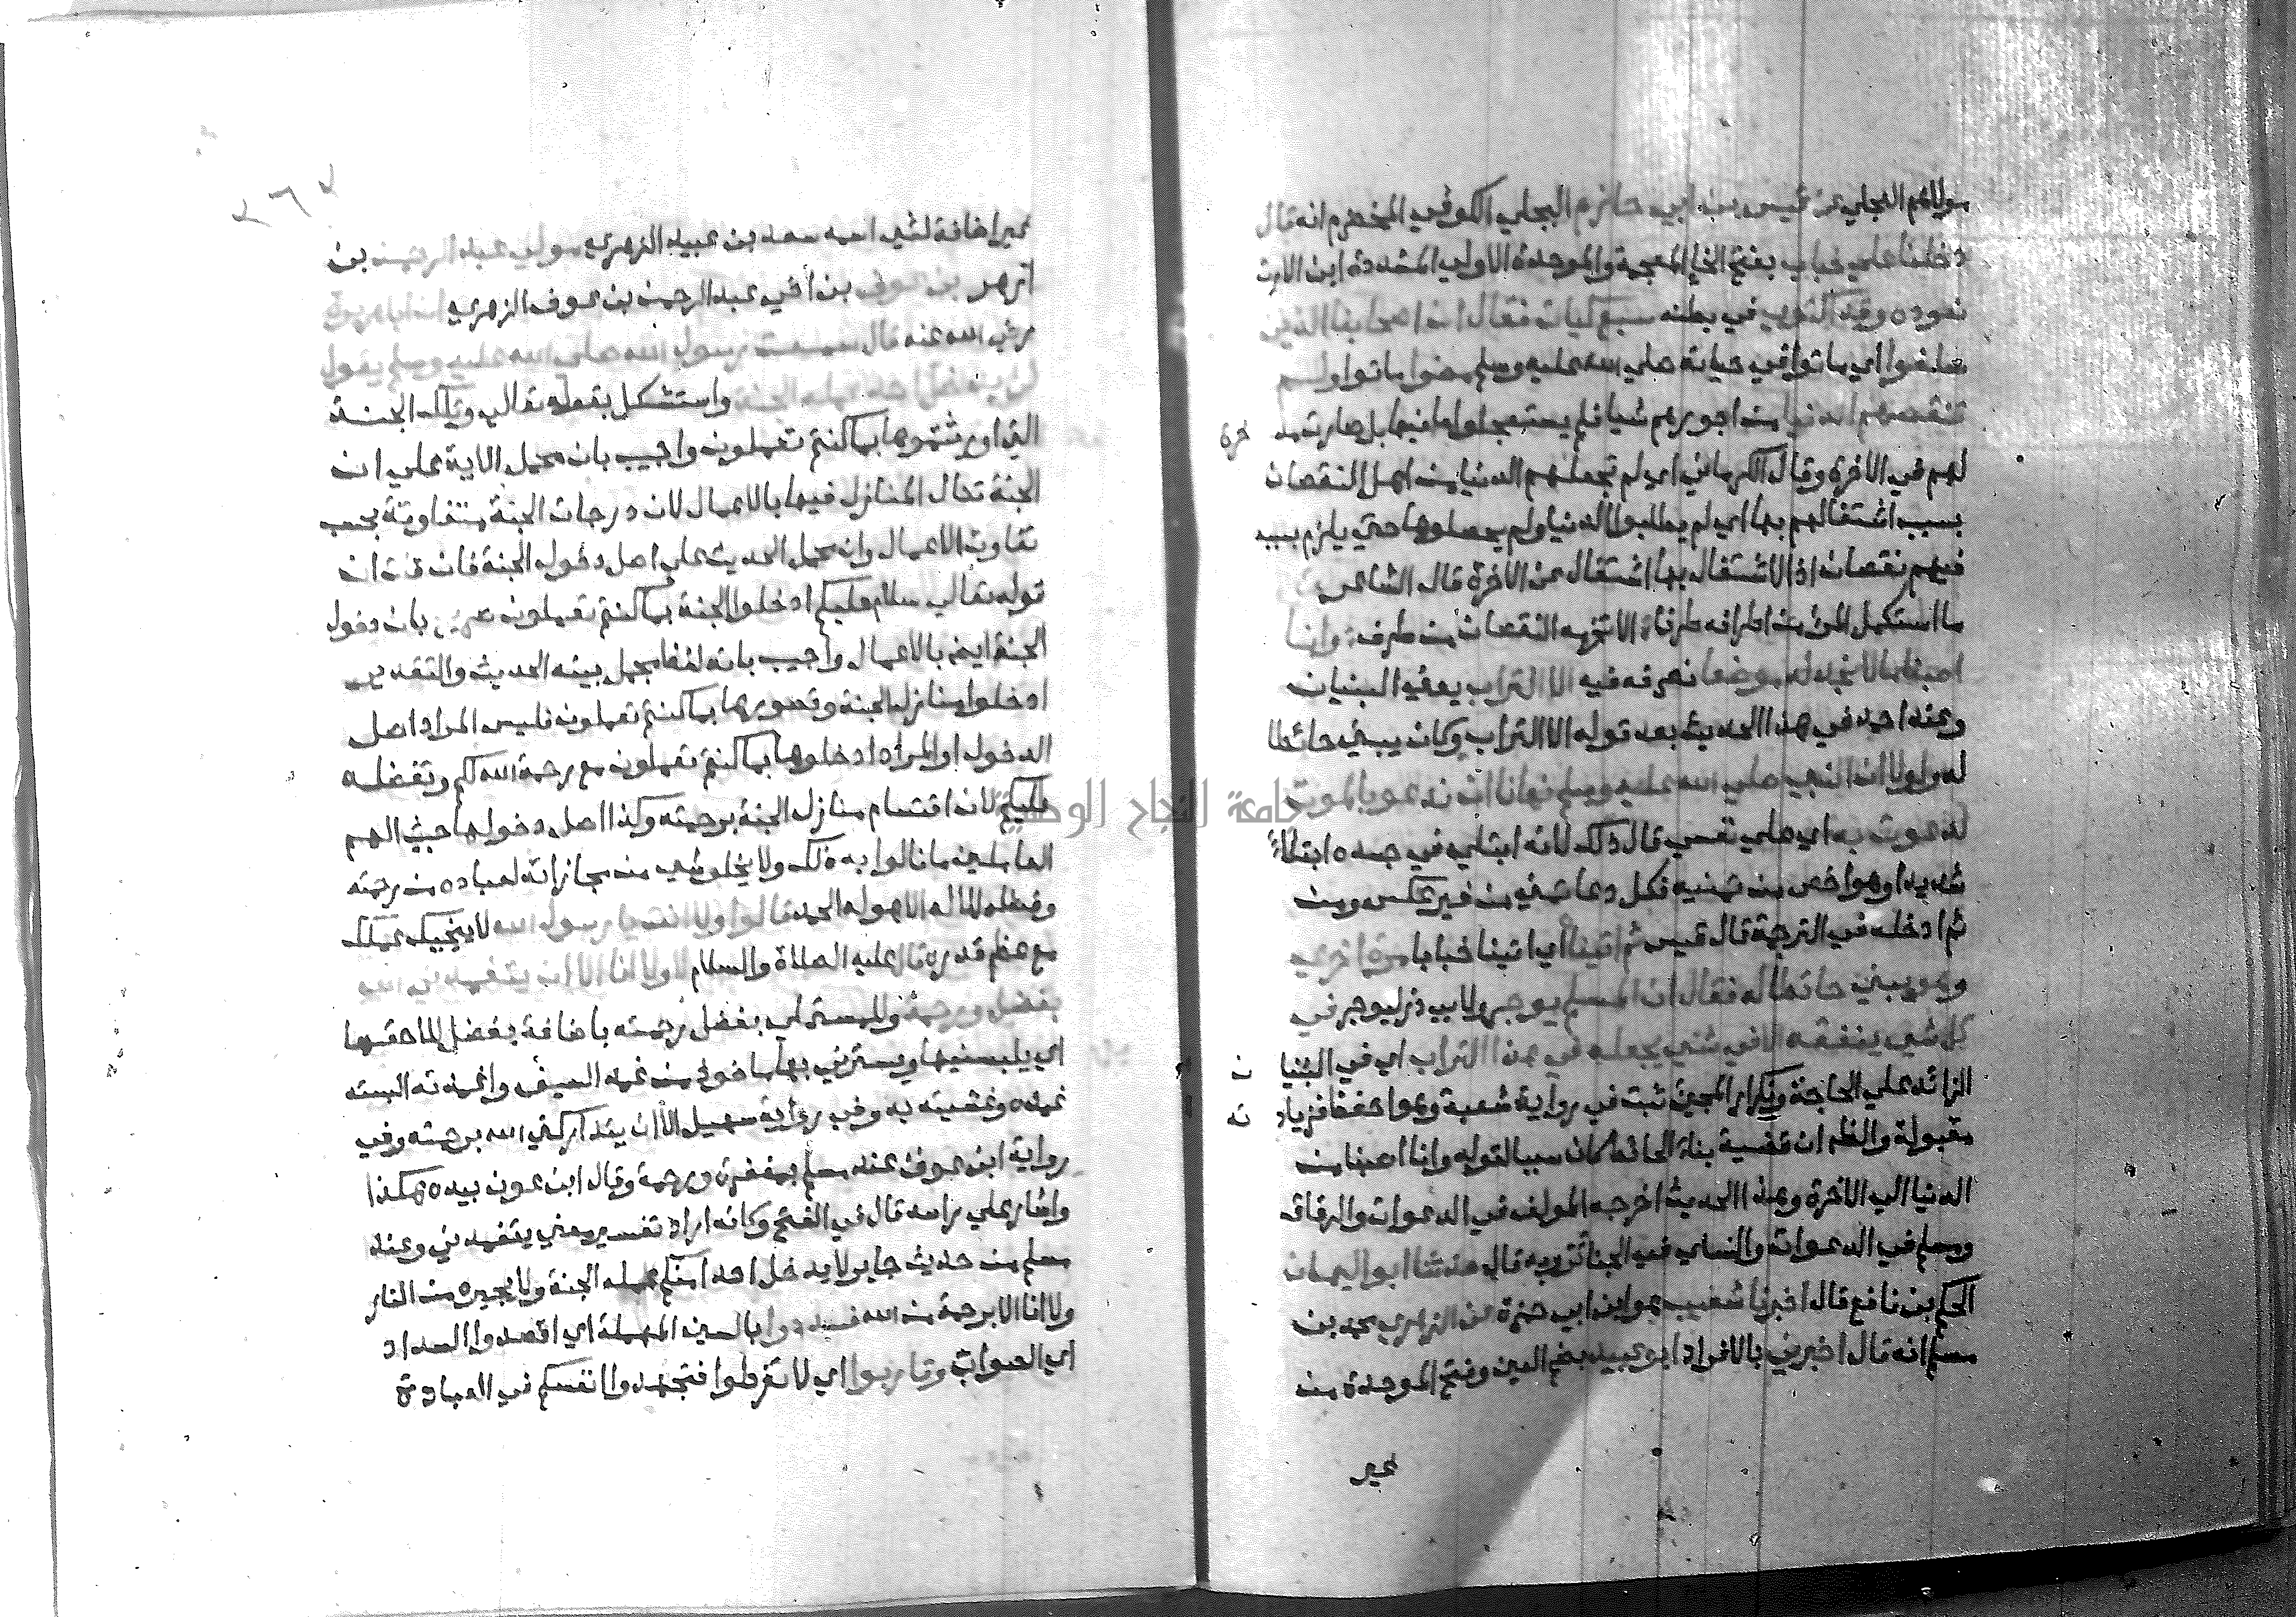 مولاهم البجلي عن قيس بن ابي حازم البجلي الكوفي المخضرم انه قال
دخلنا علي خباب بفتح الخا المعجمة والموحدة الاولي المشددة ابن الارت
نعوده وقد اكتوي في بطنه سبع كيات فقال ان اصحابنا الذين
سلفوا اي ماتوا في حياته صلي الله عليه وسلم مضوا ماتوا ولم
تنقصهم الدنيا من اجورهم شيا فلم يستعجلوا ما فيها بل صارت مدخرة
لهم في الاخرة وقال الكرماني اي لم تجعلهم الدنيا من اهل النقصان
بسبب اشتغالهم بها اي لم يطلبوا الدنيا ولم يحصلوها حتي يلزم بسببه
فيهم نقصان اذ الاشتغال بها اشتغال عن الاخرة قال الشاعر
ما استكمل المرء من اطرافه طرفا الا تخرمه النقصان من طرف وانا
اصبنا ما لا نجد له موضعا نصرفه فيه الا التراب يعني البنيان
وعند احمد في هذا الحديث بعد قوله الا التراب وكان يبني حائطا
له ولولا ان النبي صلي الله عليه وسلم نهانا ان ندعو بالموت
لدعوت به اي علي نفسي قال ذلك لانه ابتلي في جسده ابتلاء
شديدا وهو اخص من تمنيه فكل دعا تمني من غير عكس ومن
ثم ادخله في الترجمة قال قيس ثم اتيناه اي اتينا خبابا مرة اخري
وهو يبني حائطا له فقال ان المسلم يوجر ولابي ذر ليوجر في
كل شي ينفقه الا في شي يجعله في هذا التراب اي في البنيان
الزائد علي الحاجة وتكرار المجي ثبت في رواية شعبة وهو احفظ فزيادته
مقبولة والظاهر ان قضية بناء الحائط كان سببا لقوله وانا اصبنا من
الدنيا الي الاخرة وهذا الحديث اخرجه المولف في الدعوات والرقاق
ومسلم في الدعوات والنساي في الجنائز وبه قال حدثنا ابو اليمان
الحكم بن نافع قال اخبرنا شعيب هو ابن ابي حمزة عن الزهري محمد بن
مسلم انه قال اخبرني بالافراد ابو عبيد بضم العين وفتح الموحدة من
غير
غير اضافة لشي اسمه سعد بن عبيد الزهري مولي عبد الرحمن بن
ازهر بن عوف بن اخي عبد الرحمن بن عوف الزهري ان ابا هريرة
رضي الله عنه قال سمعت رسول الله صلي الله عليه وسلم يقول
لن يدخل احدا عمله الجنة واستشكل بقوله تعالي وتلك الجنة
التي اورثتموها بما كنتم تعملون واجيب بان محمل الاية علي ان
الجنة تنال المنازل فيها بالاعمال لان درجات الجنة متفاوتة بحسب
تفاوت الاعمال وان محمل الحديث علي اصل دخول الجنة فان قلت ان
قوله تعالي سلام عليكم ادخلوا الجنة بما كنتم تعملون صريح بان دخول
الجنة ايضا بالاعمال واجيب بانه لفظ مجمل بينه الحديث والتقدير
ادخلوا منازل الجنة وقصورها بما كنتم تعملون فليس المراد اصل
الدخول او المراد ادخلوها بما كنتم تعملون مع رحمة الله لكم وتفضله
عليكم لان اقتسام منازل الجنة برحمته وكذا اصل دخولها حيث الهم
العاملين ما نالوا به ذلك ولا يخلو شي من مجازاته لعباده من رحمته
وفضله لا اله الا هو له الحمد قالوا ولا انت يا رسول الله لا ينجيك عملك
مع عظم قدره قال عليه الصلاة والسلام لا ولا انا الا ان يتغمدني الله
بفضل ورحمة وللمستملي بفضل رحمته باضافة بفضل للاحقها
اي يلبسنيها ويسترني بها ماخوذ من غمد السيف واغمدته البسته
غمده وغشيته به وفي رواية سهيل الا ان يتداركني الله برحمته وفي
رواية ابن عون عند مسلم بمغفرة ورحمة وقال ابن عون بيده هكذا
واشار علي راسه قال في الفتح وكانه اراد تفسير معني يتغمدني وعند
مسلم من حديث جابر لا يدخل احدا منكم عمله الجنة ولا يجيره من النار
ولا انا الا برحمة من الله فسددوا بالسين المهملة اي اقصدوا السداد
اي الصواب وقاربوا اي لا تفرطوا فتجهدوا انفسكم في العبادة
جامعة النجاح الوطنية